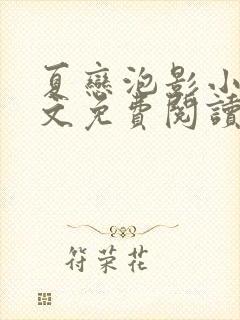 夏戀泡影小
文免費閱讀
符荣花